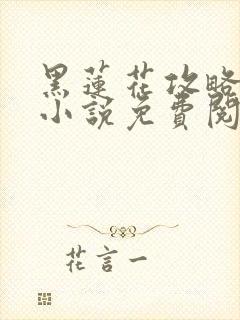 黑蓮花攻略
小說免費閱
花言一